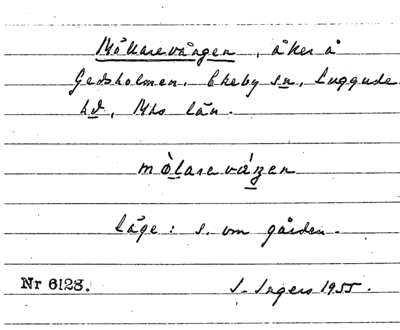 Möllarevången, åker å
Gedsholmen, Ekeby sn, Luggude
hd, Mhs län.
mò̱lareváŋen
läge: s. om gården.
Nr 6128. S. Ingers 1955.